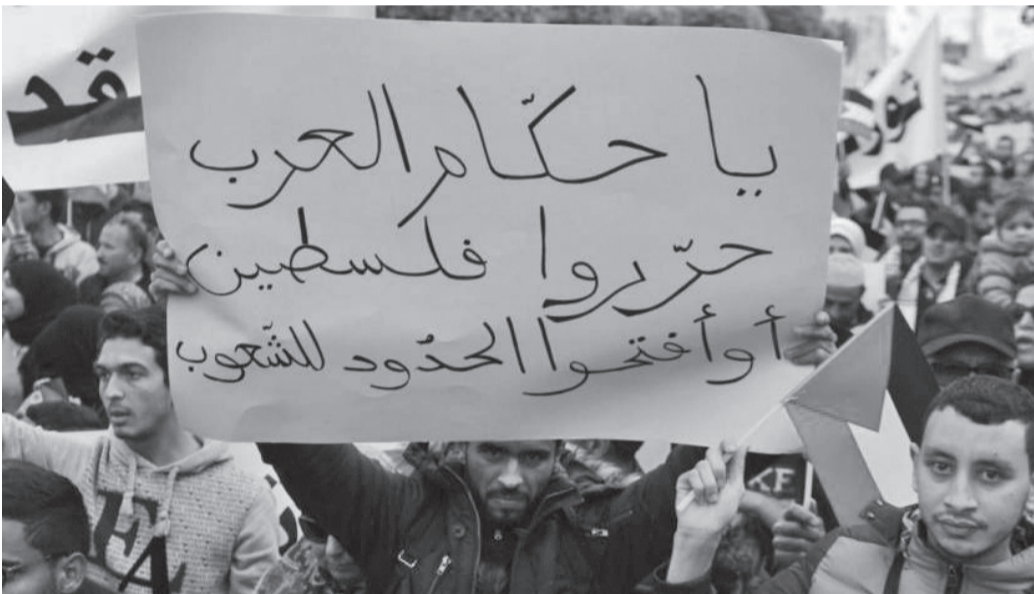 يا حكّام العرب
حرّروا فلسطين
أو أفتحوا الحدُود للشّعوب
قد
KF